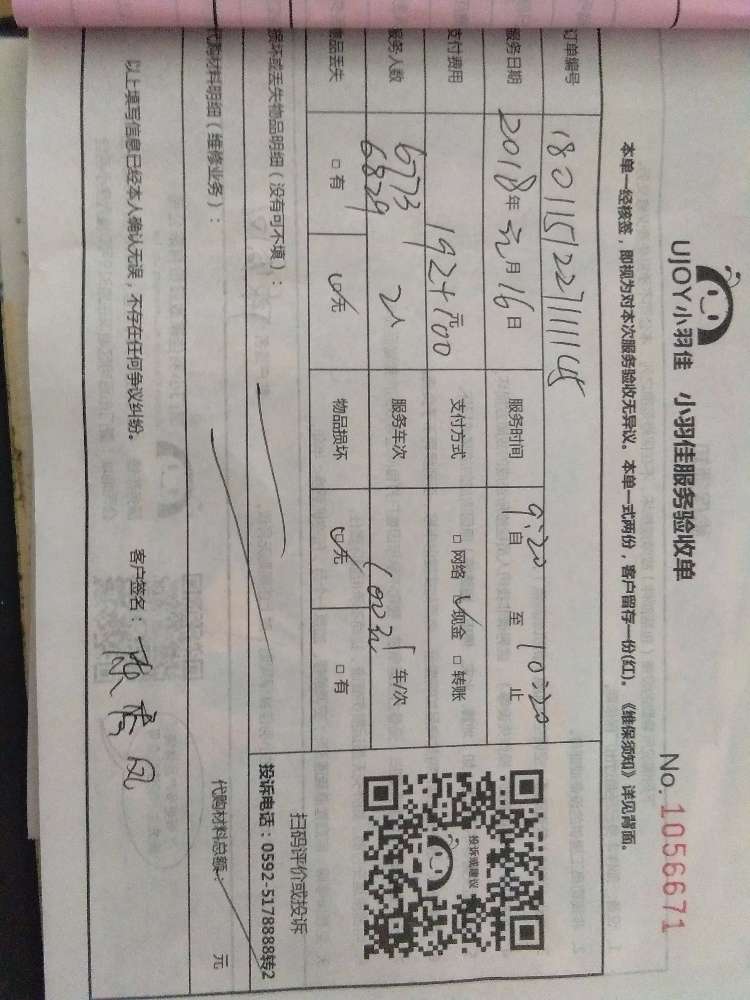 UJOY小羽佳 小羽佳服务验收单
No. 1056671
本单一经核签，即视为对本次服务验收无异议。本单一式两份，客户留存一份(红)。《维保须知》详见背面。
订单编号 180115122711114
服务日期 2018年 元月 16日 服务时间 9:20 自 至 10:20 止
支付费用 192+100 元 支付方式 □网络 ☑现金 □转账
服务人数 6773 6829 2人 服务车次 1 车/次
物品丢失 □有 ☑无 物品损坏 ☑无 □有
损坏或丢失物品明细（没有可不填）：
投诉或建议
扫码评价或投诉
投诉电话：0592-5178888转2
代购材料明细（维修业务）：
代购材料总额： 元
以上填写信息已经本人确认无误，不存在任何争议纠纷。 客户签名：